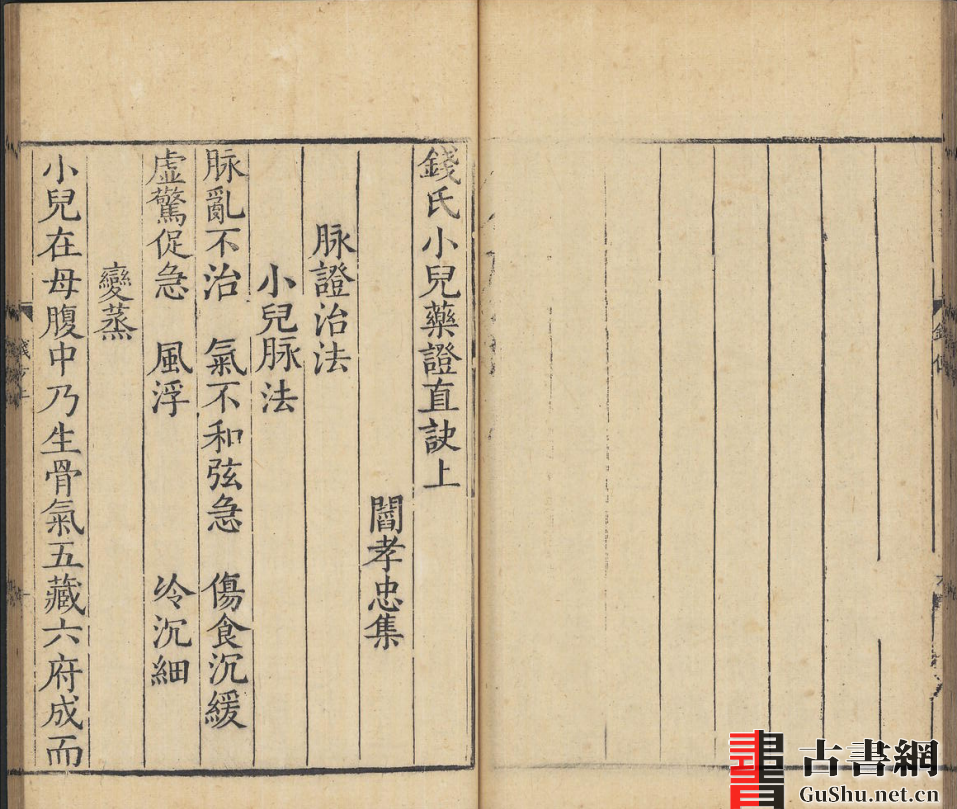 錢氏小兒藥證直訣上
閻孝忠集
脉證治法
小兒脉法
脉亂不治　氣不和弦急　傷食沉緩
虛驚促急　風浮　冷沉細
變蒸
小兒在母腹中乃生骨氣五藏六府成而
書
古書網
GuShu.net.cn